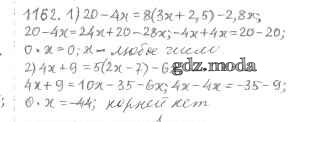 1162. 1) 20 - 4x = 8(3x + 2,5) - 2,8x;
20 - 4x = 24x + 20 - 28x; -4x + 4x = 20 - 20;
0 · x = 0; x - любое число
2) 4x + 9 = 5(2x - 7) - 6
gdz.moda
4x + 9 = 10x - 35 - 6x; 4x - 4x = -35 - 9;
0 · x = -44; корней нет